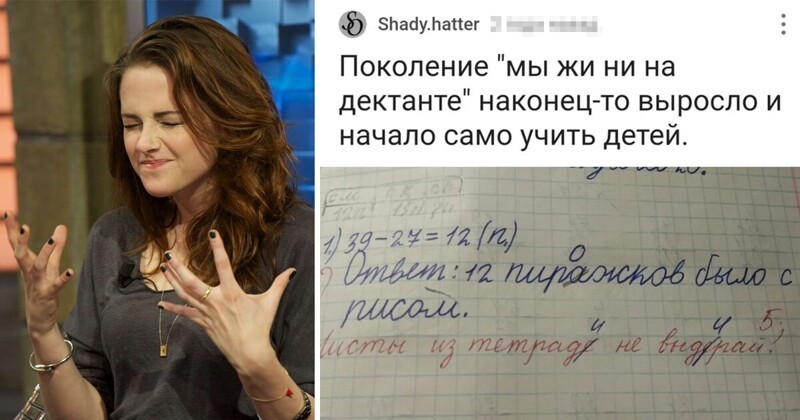 Shady.hatter
Поколение "мы жи ни на
дектанте" наконец-то выросло и
начало само учить детей.
1) 39-27=12 (п.)
Ответ: 12 пирожков было с
рисом.
5
Листы из тетради не выдирай!